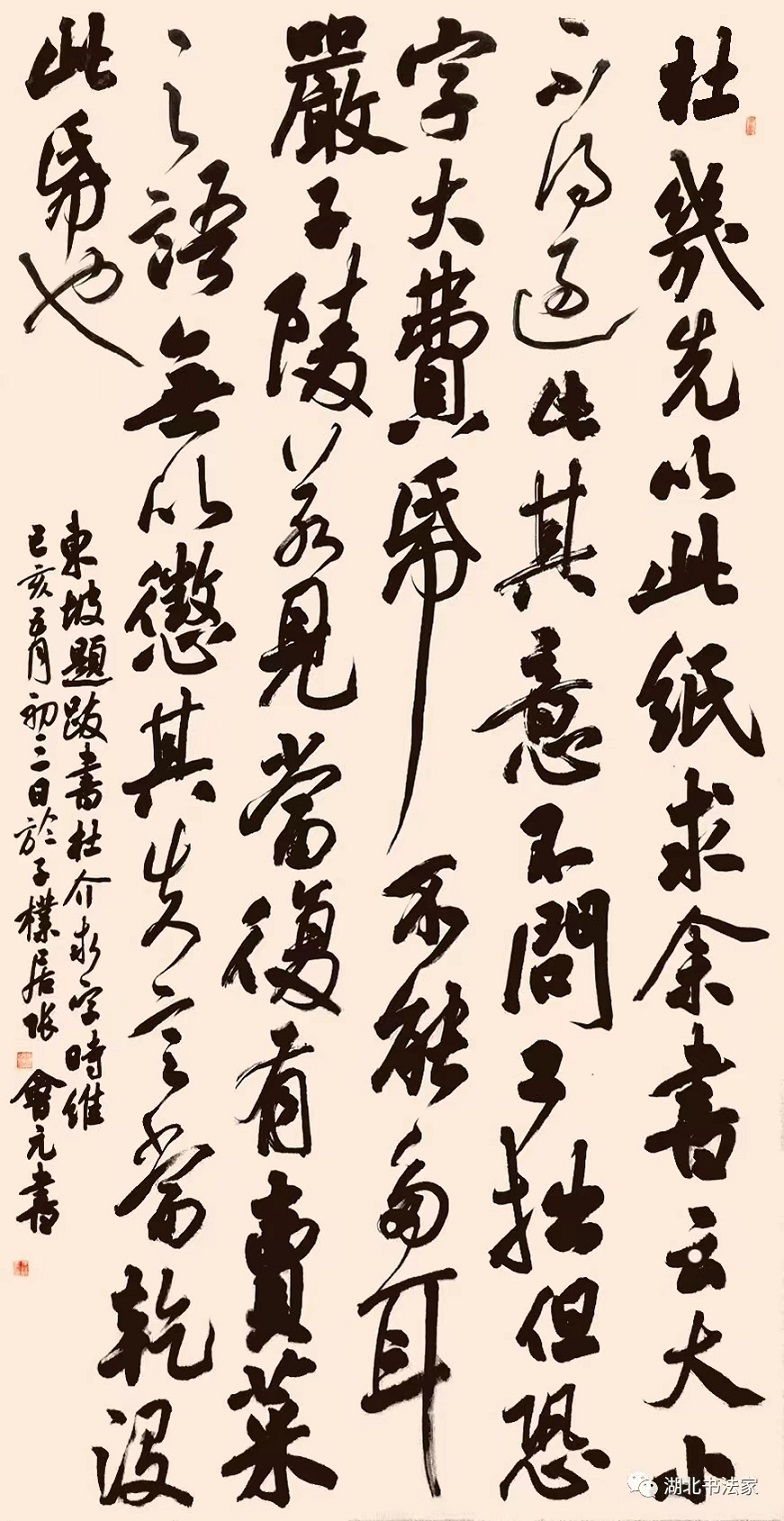 杜幾先以此紙求余書云大小
不得過此其意不問工拙但恐
字大費帋不能多耳
嚴子陵若見當復有賣菜
之語無以懲其失言當乾没
此帋也
東坡題跋書杜介求字時維
己亥五月初三日於子樸居張會元書
湖北书法家